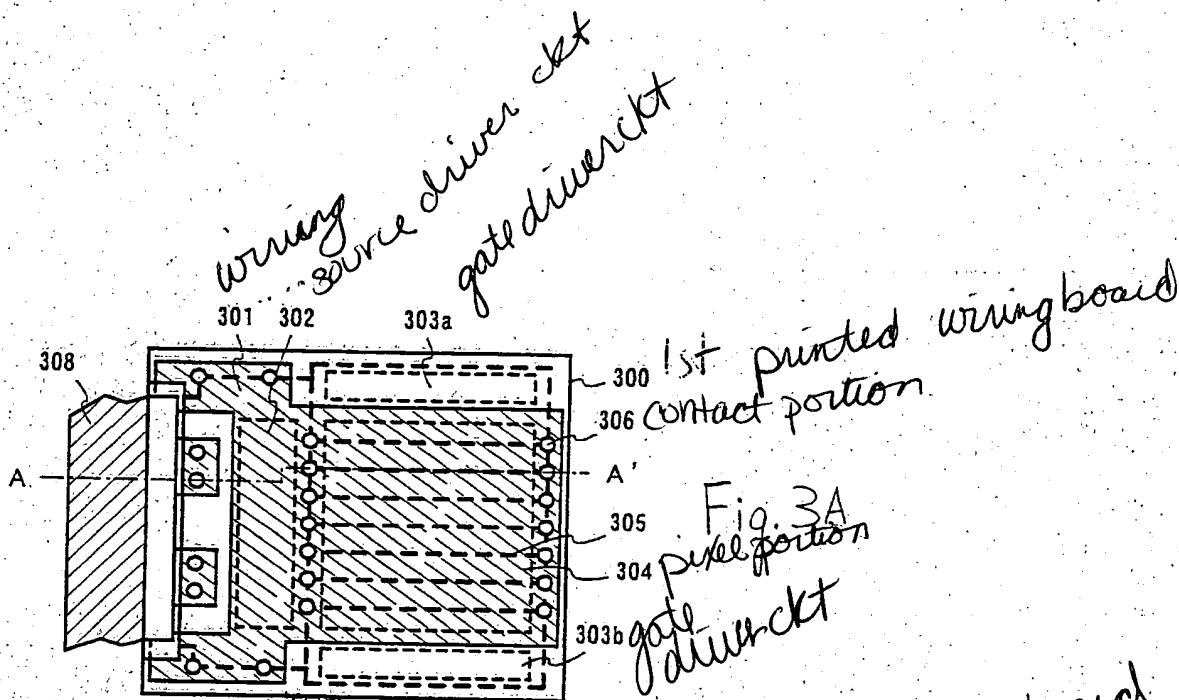 wiring
source driver ckt
gate driver ckt
301 302 303a
308
300 1st printed wiring board
306 contact portion
A A'
Fig. 3A
305
304 pixel portion
303b gate
driver ckt